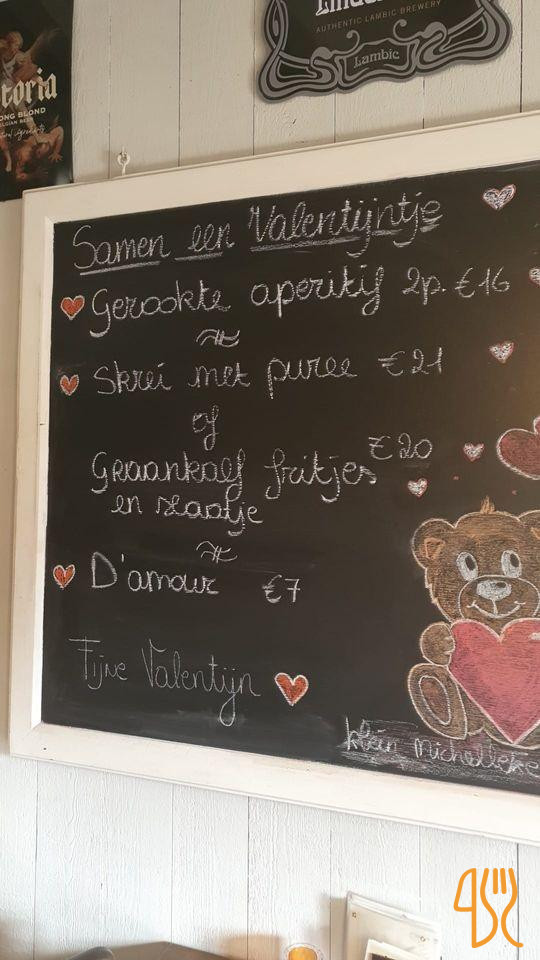 toria
ONG BLOND
LGIAN BEER
AUTHENTIC LAMBIC BREWERY
Lambic
Samen een Valentijntje
Gerookte aperitif 2p. €16
Skrei met puree €21
of
Graankalf fritjes €20
en slaatje
D'amour €7
Fijne Valentijn
klein Michelleke